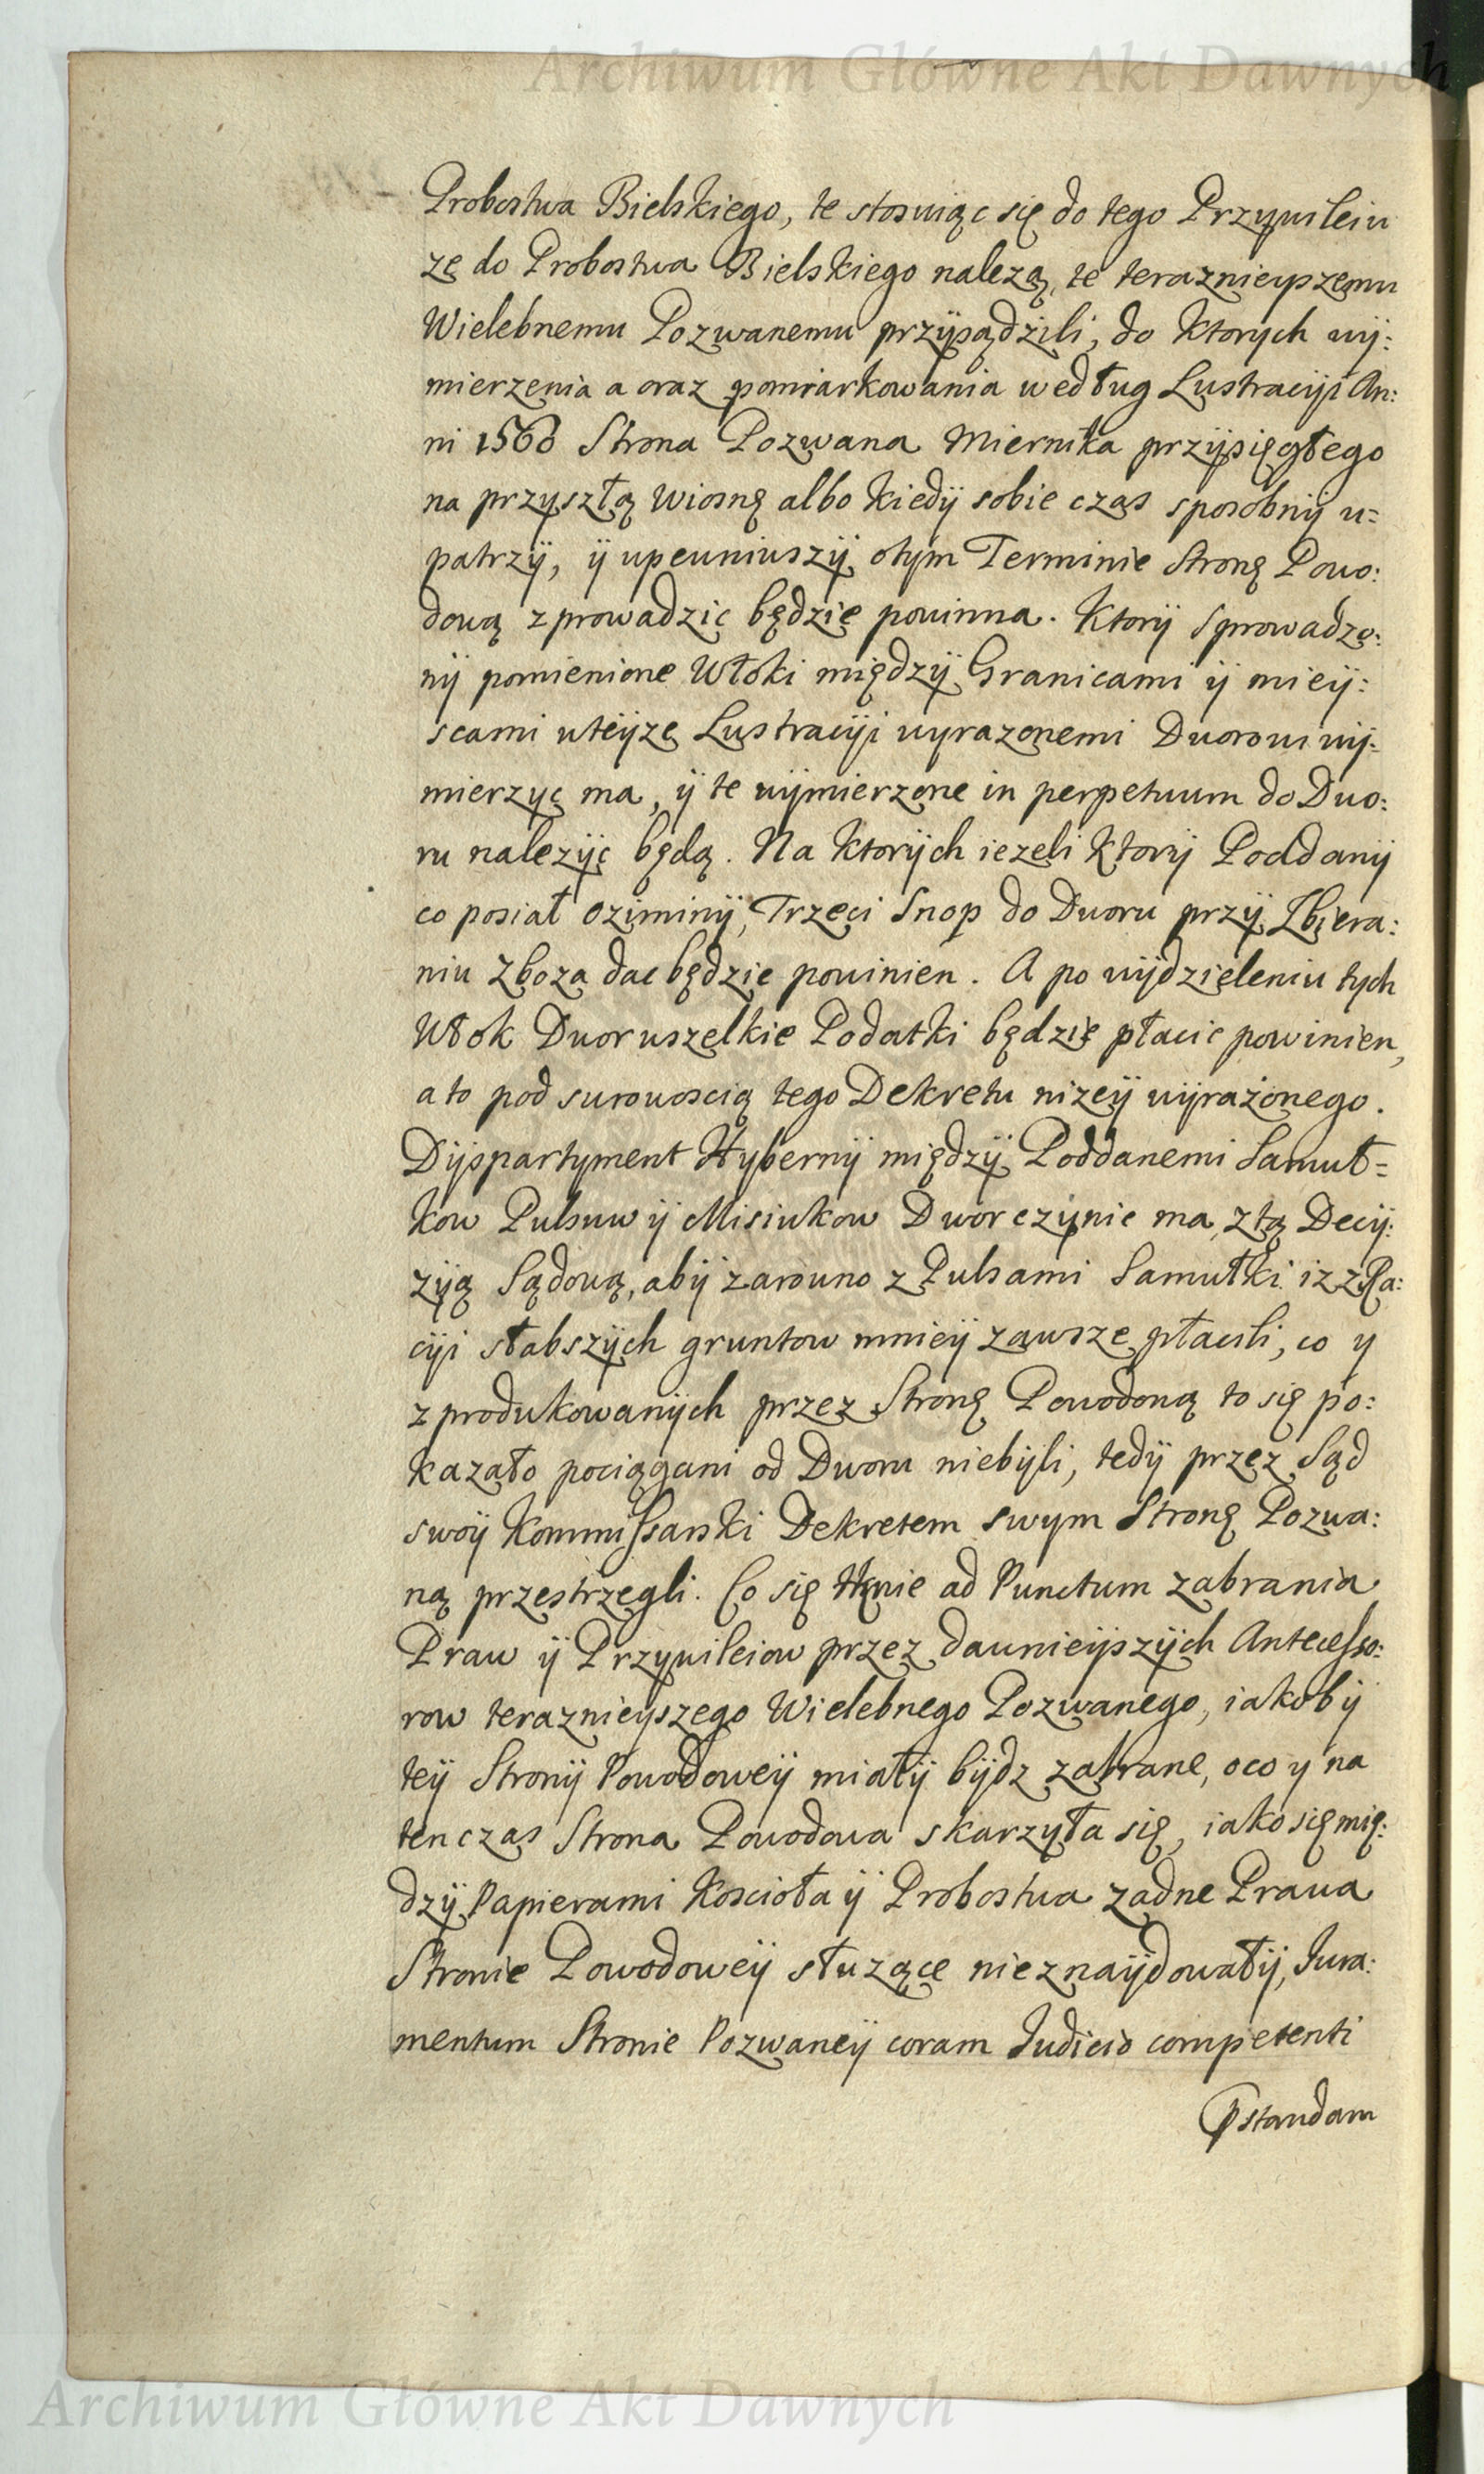 Archiwum Główne Akt Dawnych
Probostwa Bielskiego, te stosuiąc się do tego Przywileiu
że do Probostwa Bielskiego nalezą, te teraznieyszemu
Wielebnemu Pozwanemu przÿsądźili; do Ktorych wÿ:
mierzenia a oraz pomiarkowania według Lustracÿi An:
ni 1560 Strona Pozwana Miernika przÿsięgłego
na przyszłą wiosnę albo kiedÿ sobie czas sposobnÿ u=
patrzÿ, ÿ upewniwszÿ otÿm Terminie Stronę Powo:
dową zprowadzic będzie powinna. Ktorÿ sprowadzo:
nÿ pomienione Włoki międzÿ Granicami ÿ mieÿ:
scami wteÿze Lustracÿi wyrazonemi Dworowi wÿ:
mierzyc ma, ÿ te wÿmierzone in perpetuum do Dwo:
ru nalezÿc będą. Na Ktorÿch iezeli Ktorÿ Poddanÿ
co posiał oziminÿ, Trzeci Snop do Dworu przÿ Zbiera:
niu Zboza dac będzie powinien. A po wÿdzieleniu tych
Włok Dwor wszelkie Podatki będzie płacic powinien,
a to pod surowoscią tego Dekretu nizeÿ wÿrażonego.
Dÿspartyment Hybernÿ międzÿ Poddanemi Samuł=
kow Pulsuw ÿ Misiukow Dwor czÿnic ma, ztą Decÿ:
zÿą Sądową, abÿ zarowno z Pulsami Samułki iz zRa:
cÿi słabszÿch gruntow mnieÿ zawsze płacili, co y
z produkowanÿch przez Stronę Powodową to się po:
kazało pociągani od Dworu niebÿli, tedÿ przez Sąd
swoÿ Kommissarski Dekretem swym Stronę Pozwa:
ną przestrzegli. Co się tknie ad Punctum zabrania
Praw ÿ Przywileiow przez dawnieÿszÿch Antecesso:
row teraznieyszego Wielebnego Pozwanego, iakobÿ
teÿ Stronÿ Powodoweÿ miałÿ bÿdz zabrane, oco y na
ten czas Strona Powodowa skarzyła się, iako się mię:
dzÿ Papierami Koscioła ÿ Probostwa zadne Prawa
Stronie Powodoweÿ słuzące nieznaÿdowałÿ, Jura:
mentum Stronie Pozwaneÿ coram Judicio competenti
Pstandam
Archiwum Główne Akt Dawnych